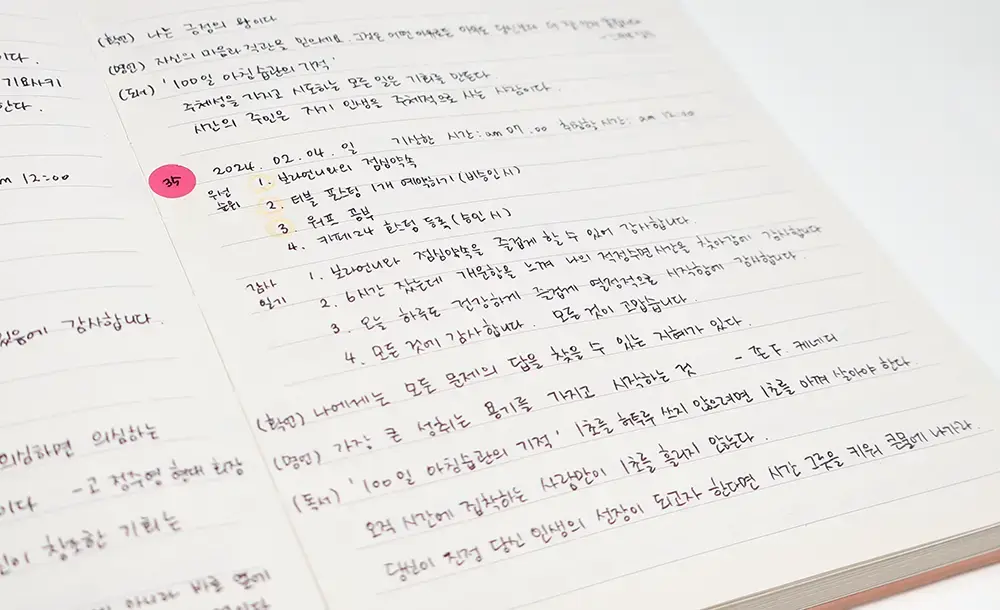 이다.
기요사키
한다.
am 12:00
있음에 감사합니다.
의심하면 의심하는
이다 - 고 정주영 현대 회장
창조한 기회는
아니라 바로 옆에
(확언) 나는 긍정의 왕이다
(명언) 자신의 마음과 직관을 믿으세요. 그것은 어떤 이유로든 이미
(독서) '100일 아침습관의 기적'
주체성을 가지고 시도하는 모든 일은 기회를 만든다.
시간의 주인은 자기 인생을 주체적으로 사는 사람이다.
35
2024. 02. 04. 일 기상한 시간: am 07.00 취침할 시간: am 12:00
우선순위
1. 보라언니와의 점심약속
2. 티블 포스팅 1개 예약하기 (비승인시)
3. 워프 공부
4. 카페24 호스팅 등록 (승인 시)
감사일기
1. 보라언니와 점심약속을 즐겁게 할 수 있어 감사합니다.
2. 6시간 잤는데 개운함을 느껴 나의 적정수면시간을 찾아감에 감사합니다
3. 오늘 하루도 건강하게 즐겁게 열정적으로 시작함에 감사합니다.
4. 모든 것에 감사합니다. 모든 것이 고맙습니다.
(확언) 나에게는 모든 문제의 답을 찾을 수 있는 지혜가 있다.
(명언) 가장 큰 성취는 용기를 가지고 시작하는 것 - 존 F. 케네디
(독서) '100일 아침습관의 기적' 1초를 허투루 쓰지 않으려면 1초를 아껴 살아야 한다.
오직 시간에 집착하는 사람만이 1초를 흘리지 않는다.
당신이 진정 당신 인생의 선장이 되고자 한다면 시간 그릇을 키워 큰물에 나가라.